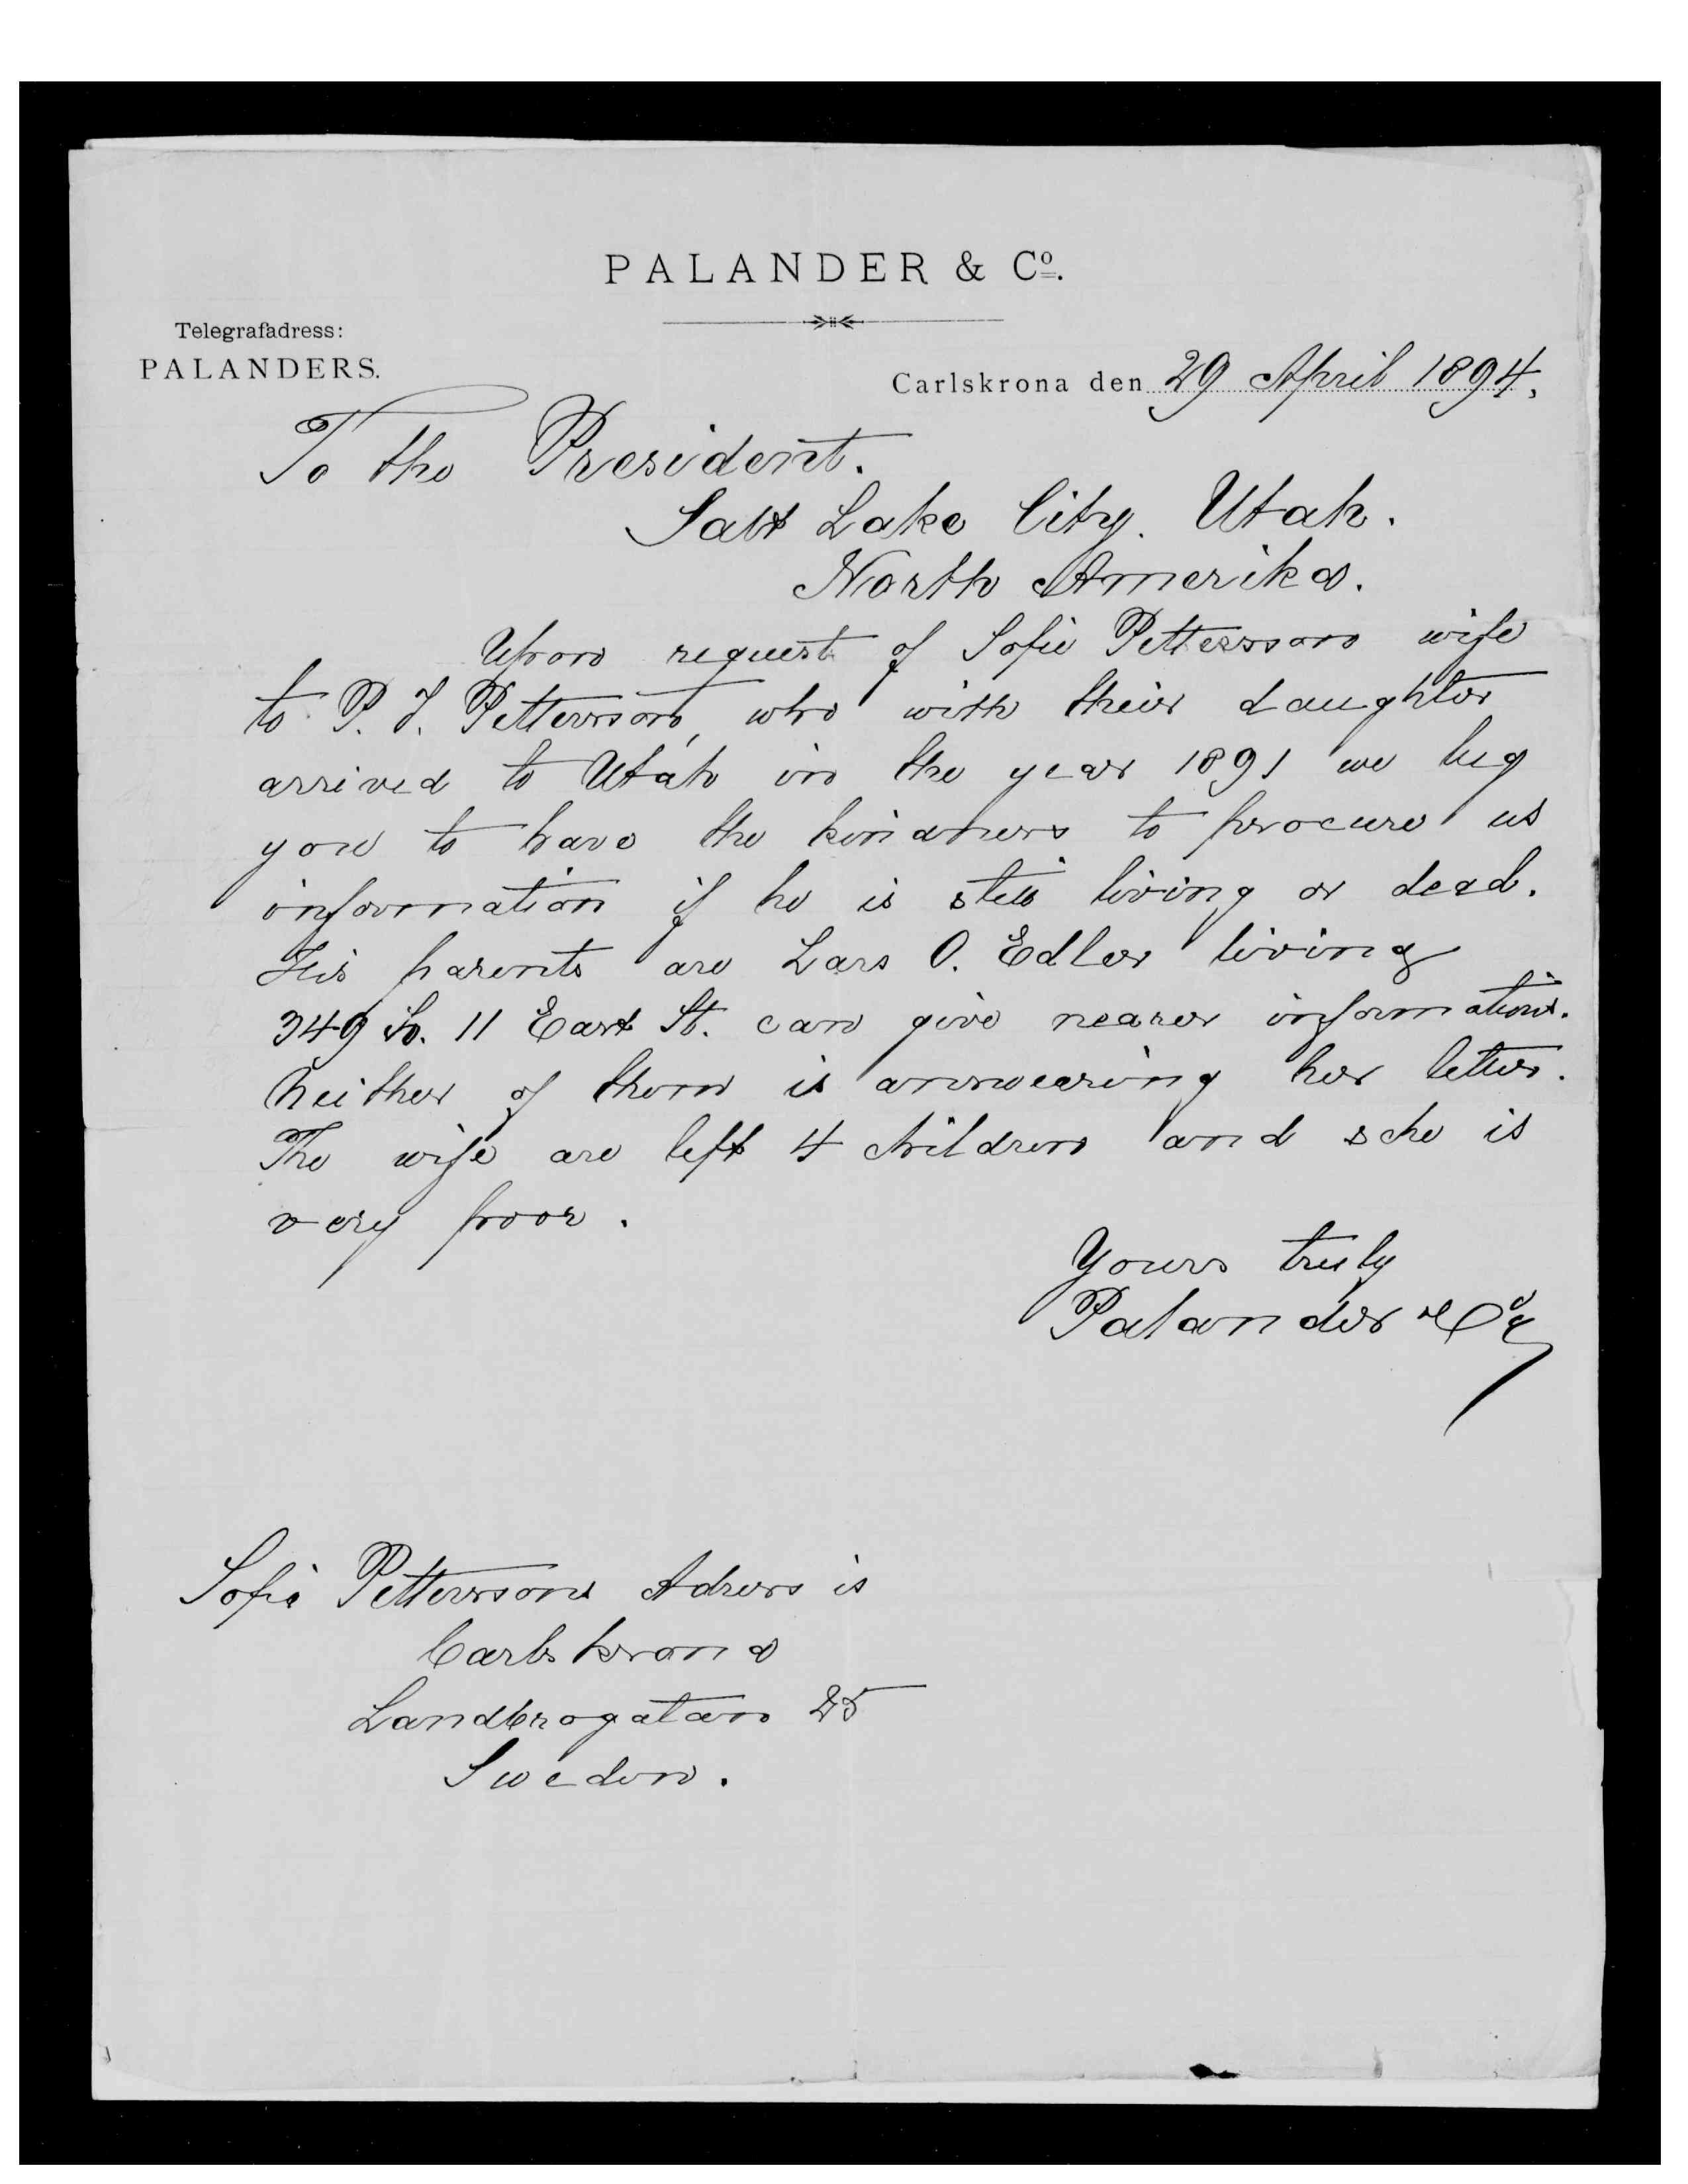 PALANDER & Co.
Telegrafadress:
PALANDERS.
Carlskrona den 29 April 1894.
To the President.
Salt Lake City. Utah.
North Amerika.
Upon request of Sofie Pettersson wife
to P. J. Pettersson, who with their daughter
arrived to Utah in the year 1891 we beg
you to have the kindness to procure us
information if he is still living or dead.
His parents are Lars O. Edler living
349 So. 11 East St. can give nearer informations.
Neither of them is answearing her letters.
The wife are left 4 children and sche is
very poor.
Yours truly
Palander & Co
Sofie Petterssons Adress is
Carlskrona
Landbrogatan 25
Sweden.